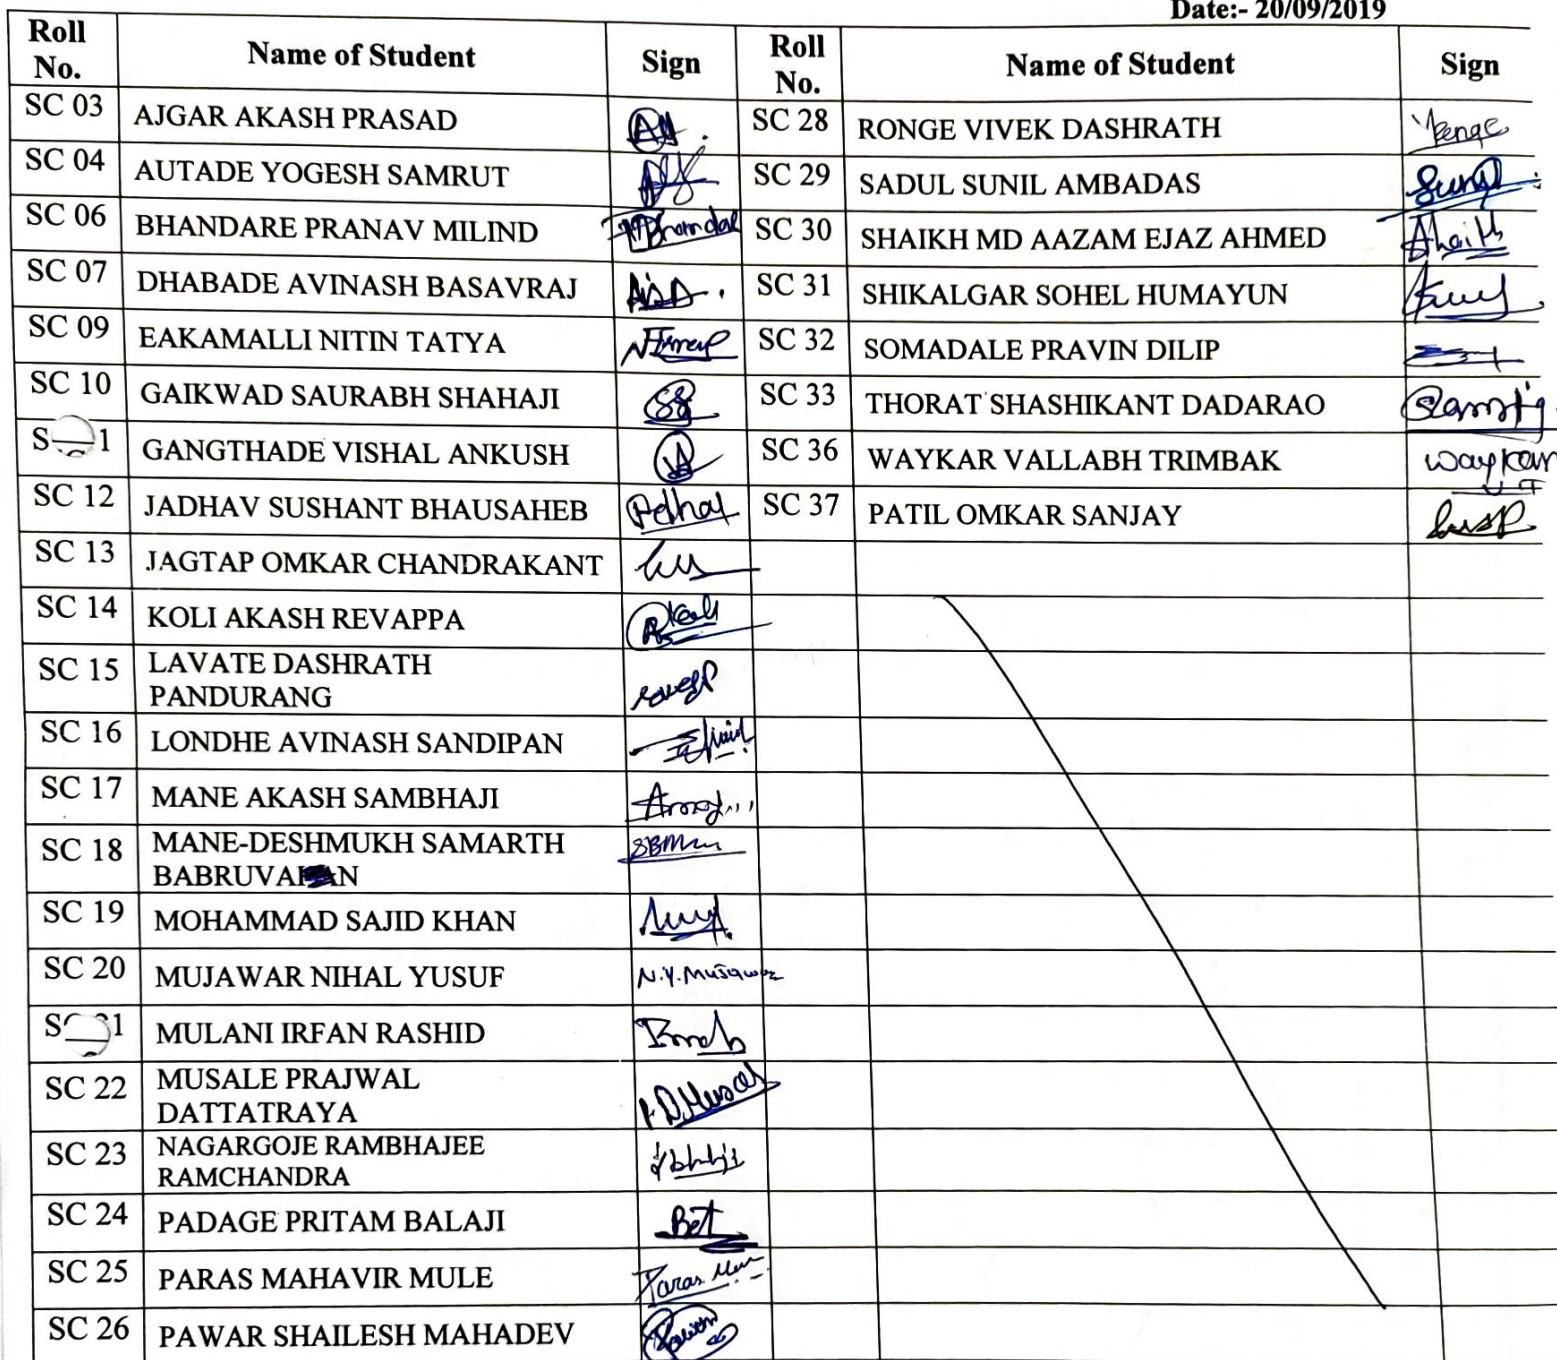 Date:- 20/09/2019
Roll No. Name of Student Sign Roll No. Name of Student Sign
SC 03 AJGAR AKASH PRASAD SC 28 RONGE VIVEK DASHRATH
SC 04 AUTADE YOGESH SAMRUT SC 29 SADUL SUNIL AMBADAS
SC 06 BHANDARE PRANAV MILIND SC 30 SHAIKH MD AAZAM EJAZ AHMED Shaikh
SC 07 DHABADE AVINASH BASAVRAJ SC 31 SHIKALGAR SOHEL HUMAYUN
SC 09 EAKAMALLI NITIN TATYA SC 32 SOMADALE PRAVIN DILIP
SC 10 GAIKWAD SAURABH SHAHAJI SC 33 THORAT SHASHIKANT DADARAO
GANGTHADE VISHAL ANKUSH SC 36 WAYKAR VALLABH TRIMBAK Waykar
SC 12 JADHAV SUSHANT BHAUSAHEB SC 37 PATIL OMKAR SANJAY
SC 13 JAGTAP OMKAR CHANDRAKANT
SC 14 KOLI AKASH REVAPPA
SC 15 LAVATE DASHRATH
PANDURANG
SC 16 LONDHE AVINASH SANDIPAN
SC 17 MANE AKASH SAMBHAJI
SC 18 MANE-DESHMUKH SAMARTH
SC 19 MOHAMMAD SAJID KHAN
SC 20 MUJAWAR NIHAL YUSUF N.Y.Mujawar
MULANI IRFAN RASHID
SC 22 MUSALE PRAJWAL
DATTATRAYA
SC 23 NAGARGOJE RAMBHAJEE
RAMCHANDRA
SC 24 PADAGE PRITAM BALAJI
SC 25 PARAS MAHAVIR MULE Paras
SC 26 PAWAR SHAILESH MAHADEV